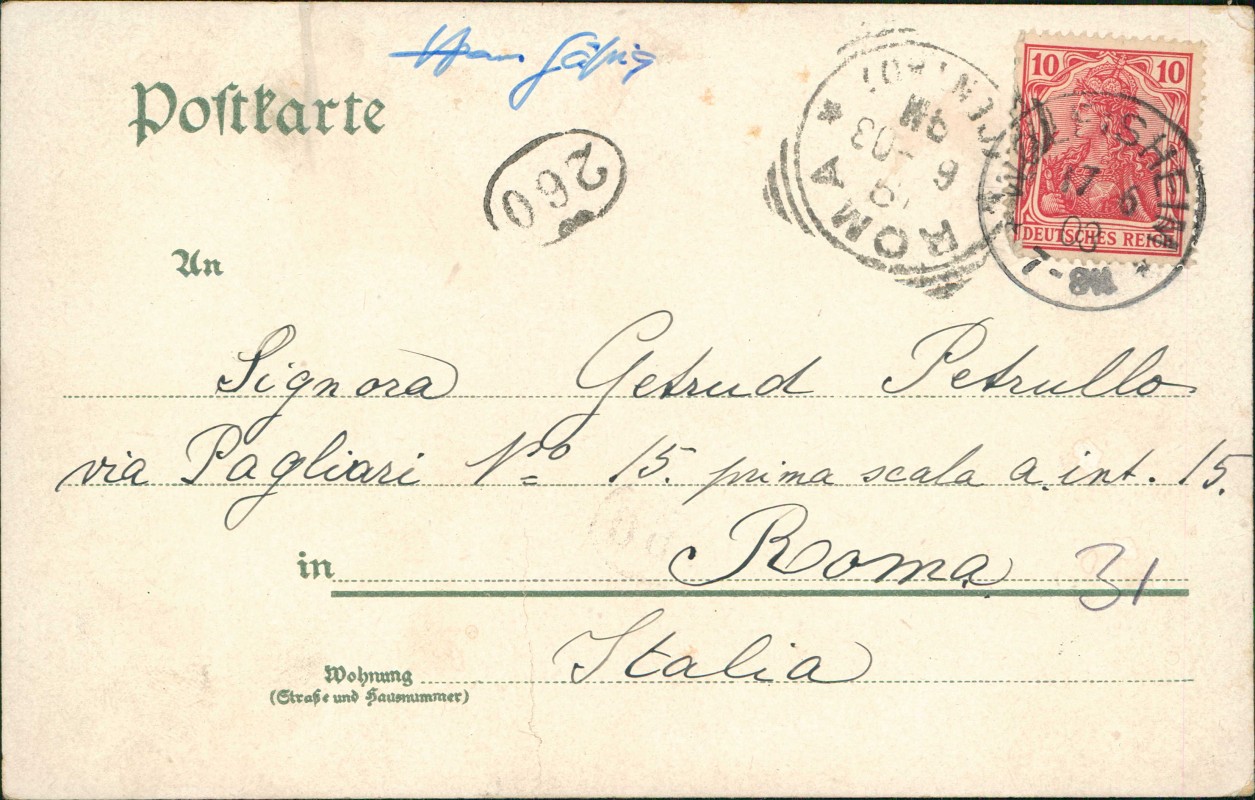 Postkarte
260
ROMA
6 - 03
9M
10 10
DEUTSCHES REICH
17 6
03
7-8N
An
Signora Getrud Petrullo
via Pagliari No 15. prima scala a. int. 15.
in Roma 31
Italia
Wohnung
(Straße und Hausnummer)